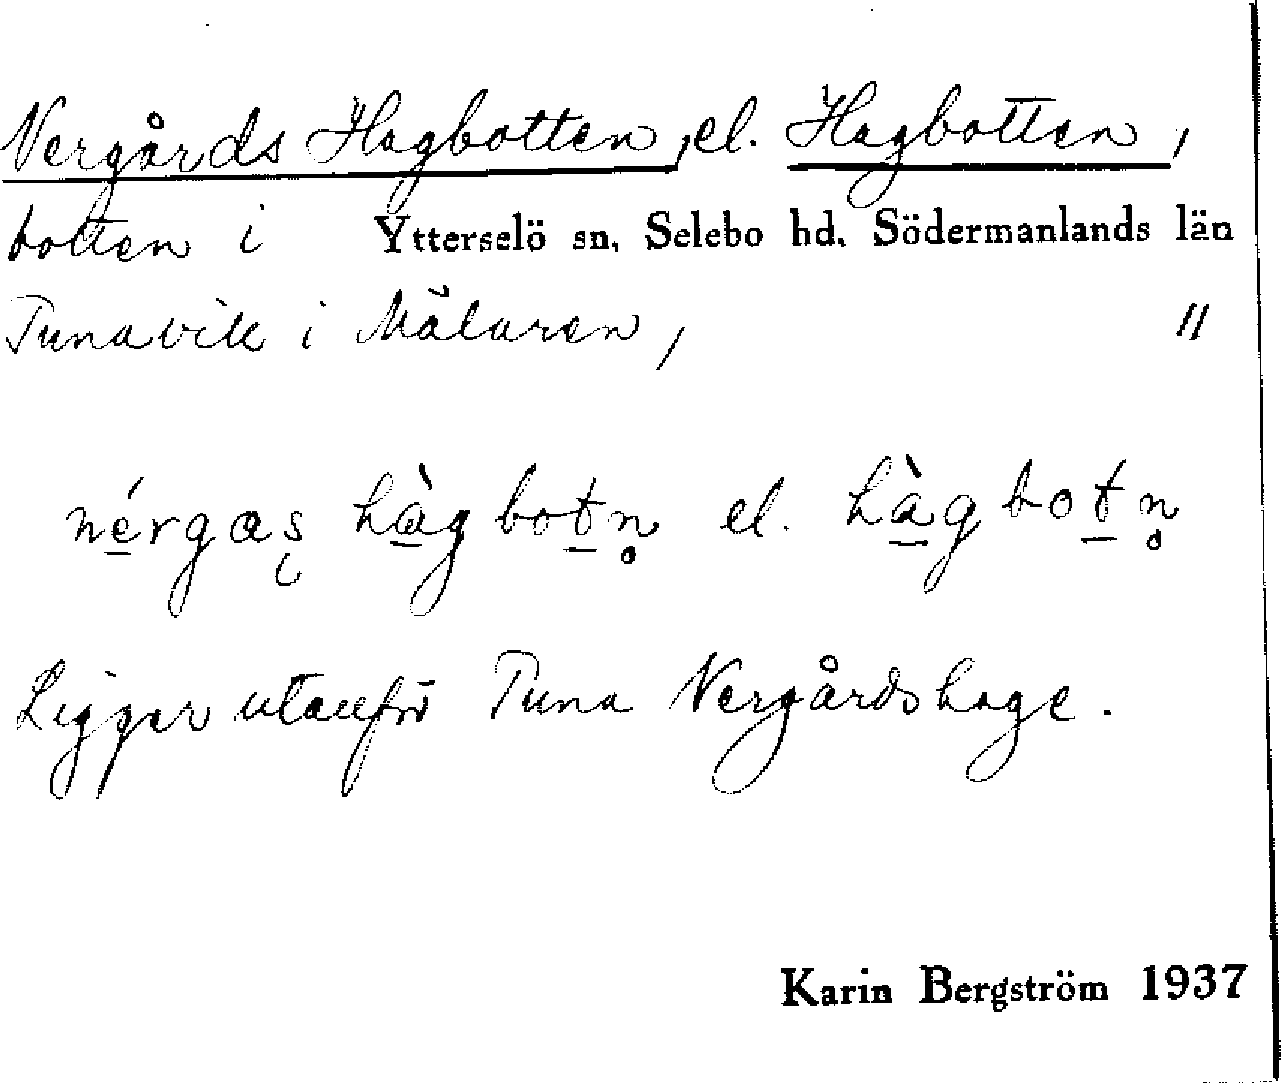 Nergårds Hagbotten, el. Hagbotten,
botten i Ytterselö sn. Selebo hd. Södermanlands län
Tunavik i Mälaren, "
nérgas hàgbotn el. hàgbotn
Ligger utanför Tuna Nergårdshage.
Karin Bergström 1937